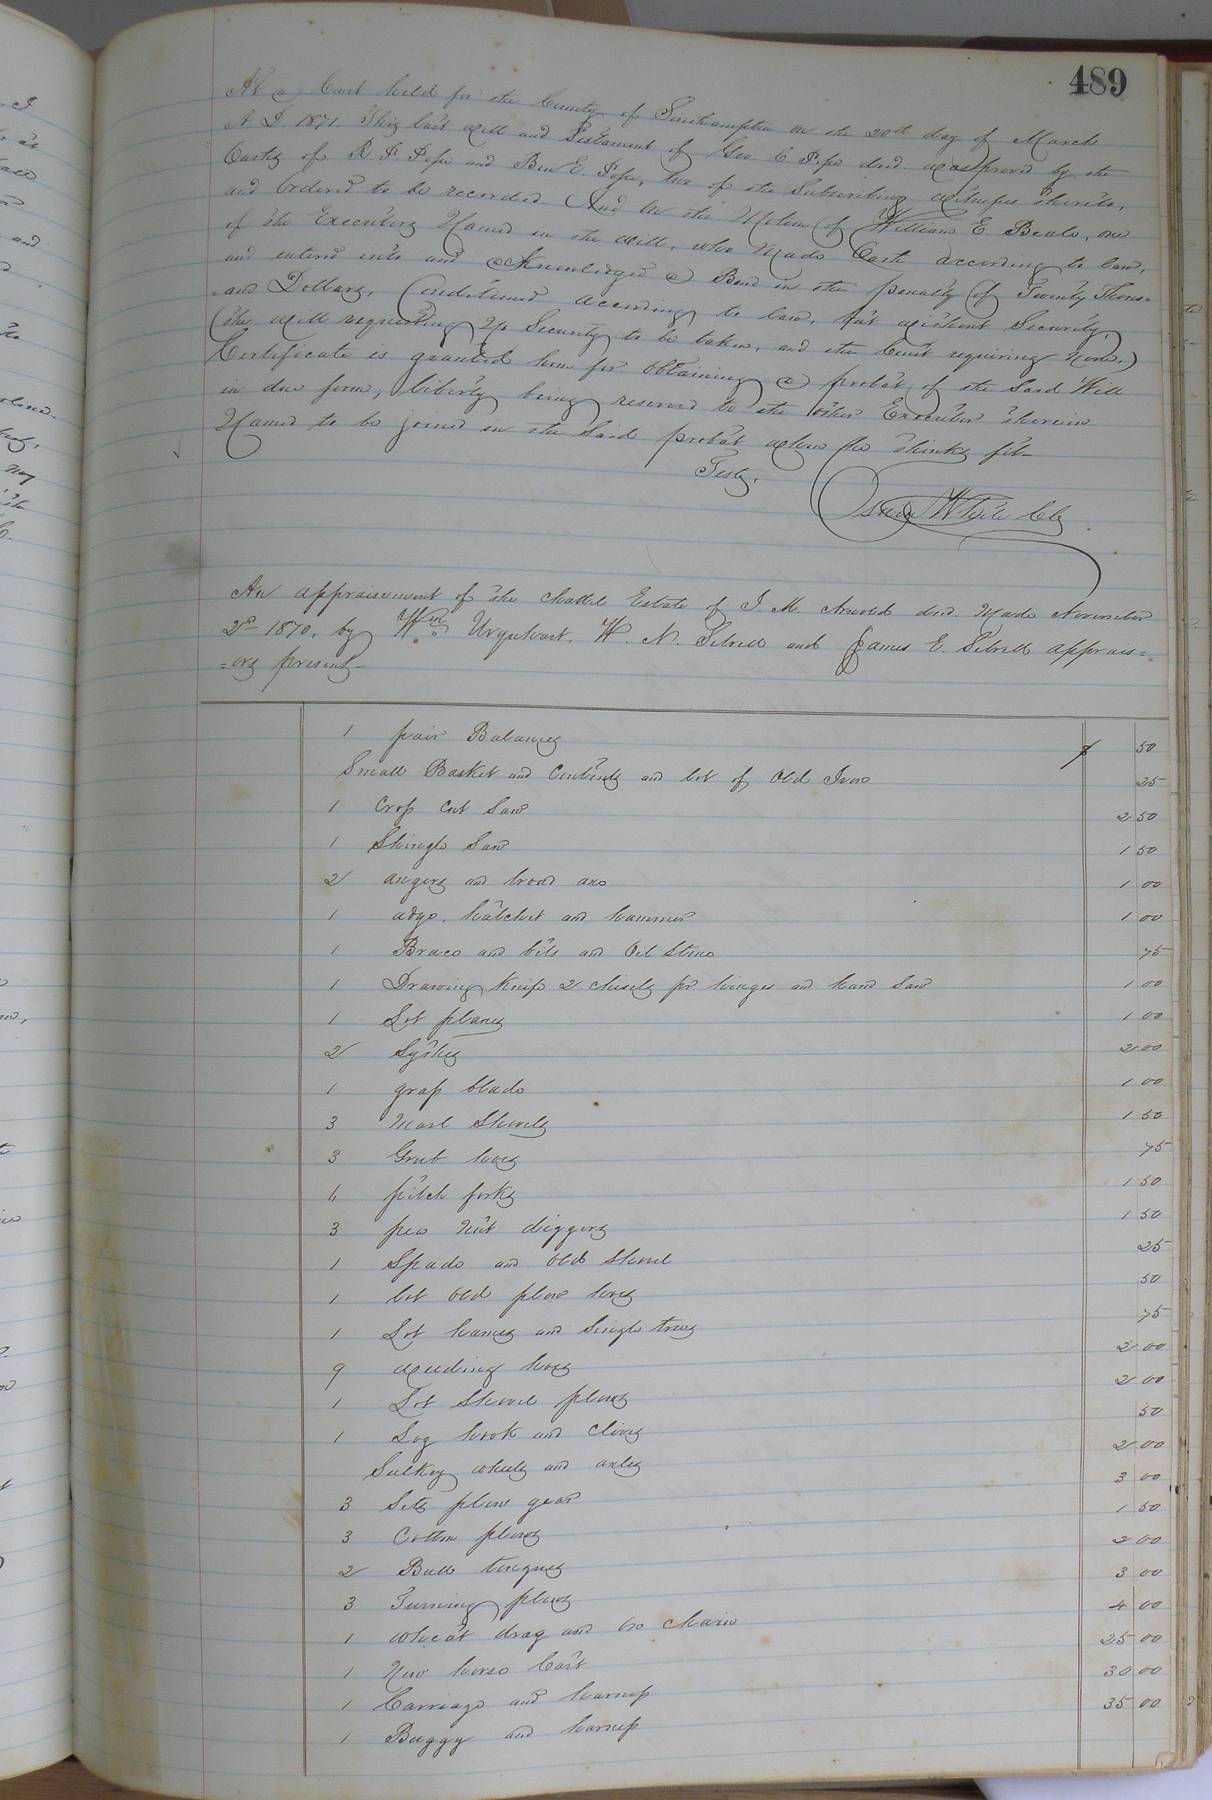 489
At a Court held for the County of Southampton on the 20th day of March
A. D. 1871. This last Will and Testament of Geo. C Pope decd. was proved by the
Oaths of R F Pope and Ben E. Pope, two of the Subscribing witnesses thereto,
and Ordered to be recorded And on the Motion of William E Beale, one
of the Executors Named in the Will, who Made Oath according to law,
and entered into and acknowledged a Bond in the penalty of Twenty Thous=
and Dollars, Conditioned according to law, but without Security,
(the Will requesting No Security to be taken, and the Court requiring None,)
Certificate is granted him for obtaining a probat of the Said Will
in due form, liberty being reserved to the other Executor therein
Named to be joined in the Said probat when he thinks fit—
Teste,
White Clk
An appraisement of the chattel Estate of J. M. Arnold decd. Made November
2d 1870, by Wm Urquhart, W. N. Sebrell and James E. Sebrell apprais=
=ors present—
1 pair Balances $ 50
Small Basket and Contents and lot of Old Iron 25
1 Crop Cut Saw 2 50
1 Shingle Saw 1 50
2 augers and broad axe 1 00
1 adge, hatchet and hammer 1 00
1 Brace and bits and Oil Stone 75
1 Drawing Knife 2 chisels pr hinges and hand Saw 1 00
1 Lot planes 1 00
2 Sythes 2 00
1 grass blade 1 00
3 Marl Shovels 1 50
3 Grub hoes 75
4 pitch forks 1 50
3 pea Nut diggers 1 50
1 Spade and old Shovel 25
1 lot old plow hoes 50
1 Lot hames and Single trees 75
9 weeding hoes 2 00
1 Lot Shovel plows 2 00
1 Log hook and clivis 50
Sulkey wheels and axles 2 00
3 Sets plow gear 3 00
3 Cotton plows 1 50
2 Bull tongues 2 00
3 Turning plows 3 00
1 wheat drag and ox chain 4 00
1 New horse Cart 25 00
1 Carriage and harness 30 00
1 Buggy and harness 35 00